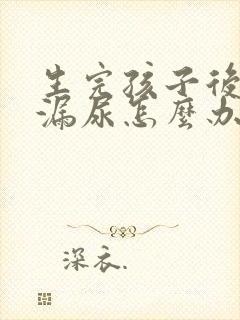 生完孩子後
漏尿怎麼办
深衣.